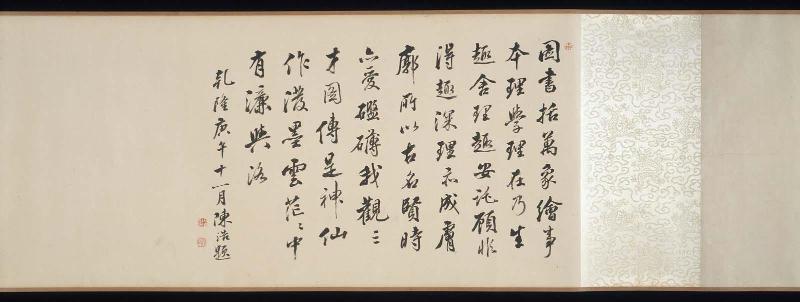 圖書括萬象繪事
本理學理在乃生
趣舍理趣安託顧非
得趣深理亦成膚
廓所以古名賢時
六愛礚礴我觀三
才圖傳是神仙
作潑墨雲茫〻中
有濂與洛
乾隆庚午十一月陳浩題